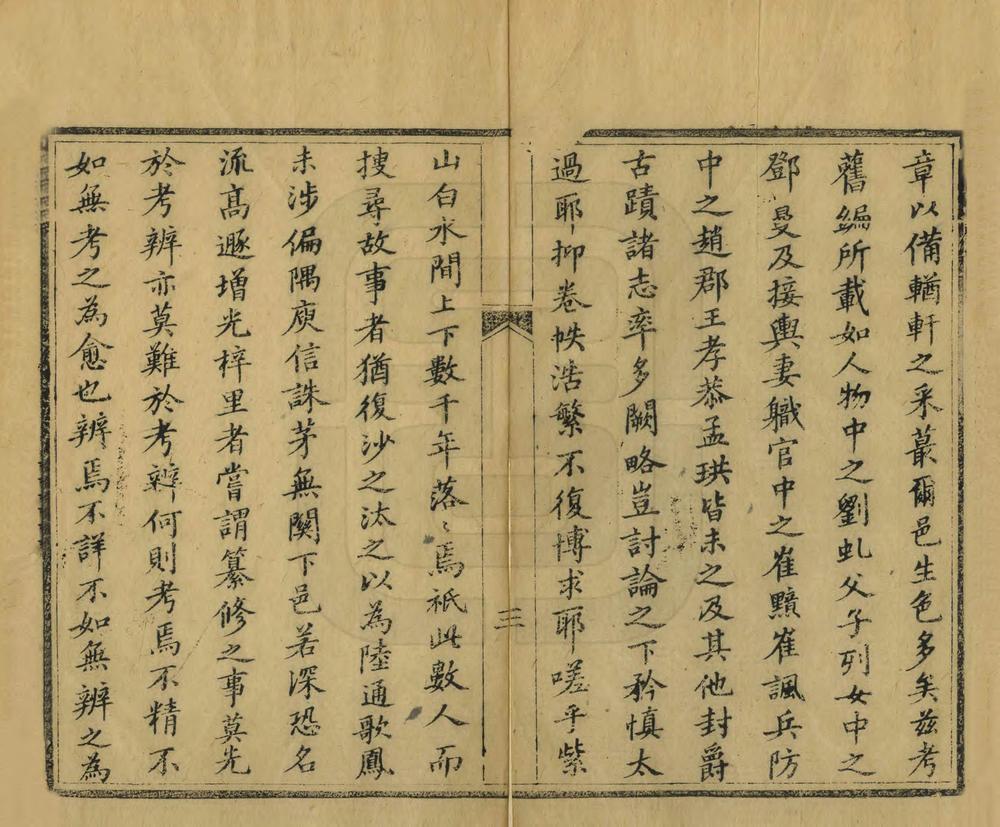 章以備輶軒之采蕞爾邑生色多矣茲考
舊編所載如人物中之劉虬父子列女中之
鄧曼及接輿妻職官中之崔黯崔諷兵防
中之趙郡王孝恭孟珙皆未之及其他封爵
古蹟諸志率多闕略豈討論之下矜慎太
過耶抑卷帙浩繁不復博求耶嗟乎紫
三
山白水間上下數千年落〻焉祇此數人而
搜尋故事者猶復沙之汰之以為陸通歌鳳
未涉偏隅庾信誅茅無關下邑若深恐名
流高遯增光梓里者嘗謂纂修之事莫先
於考辨亦莫難於考辨何則考焉不精不
如無考之為愈也辨焉不詳不如無辨之為